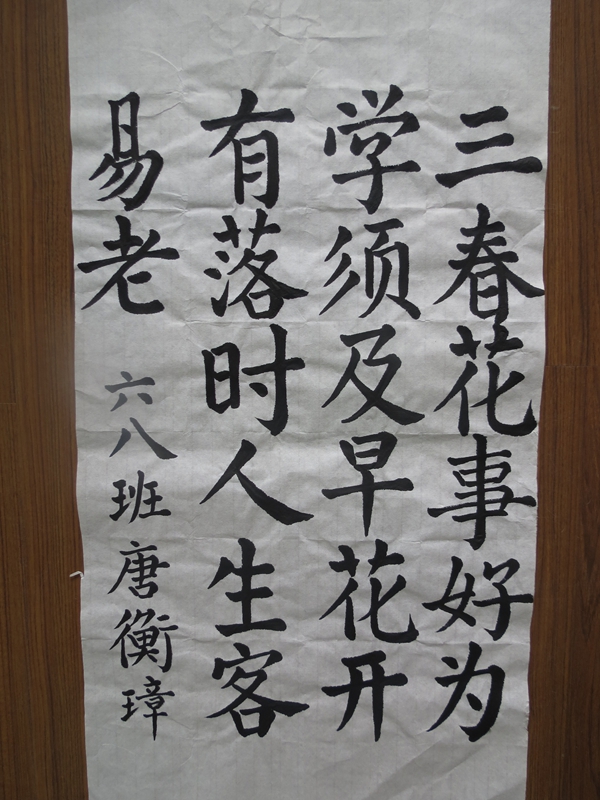 三春花事好为
学须及早花开
有落时人生客
易老
六八班唐衡璋